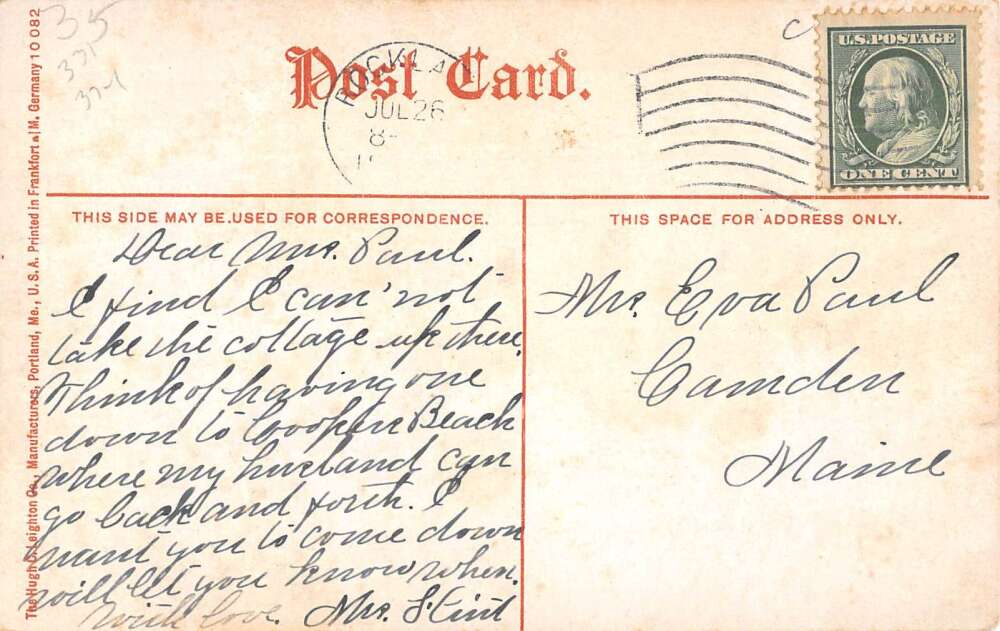 35
371
Post Card.
ROCKLA
JUL 26
8-
U.S. POSTAGE
ONE CENT
The Hugh C. Leighton Co., Manufacturers, Portland, Me., U.S.A. Printed in Frankfort a/M. Germany 10 082
THIS SIDE MAY BE USED FOR CORRESPONDENCE.
Dear Mrs. Paul.
I find I can'not
take the cottage up there.
Think of having one
down to Cooper Beach
where my husband can
go back and forth. I
want you to come down
will let you know when.
With love. Mrs.
THIS SPACE FOR ADDRESS ONLY.
Mrs. Eva Paul
Camden
Maine